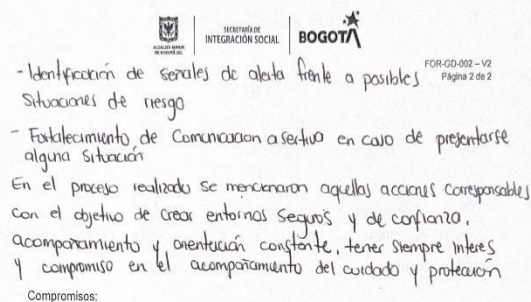 ALCALDÍA MAYOR
DE BOGOTÁ D.C.
SECRETARÍA DE
INTEGRACIÓN SOCIAL
BOGOTÁ
FOR-GD-002 – V2
Página 2 de 2
- Identificación de señales de alerta frente a posibles
Situaciones de riesgo
- Fortalecimiento de Comunicacion asertiva en caso de presentarse
alguna Situación
En el proceso realizado se mencionaron aquellas acciones corresponsables
con el objetivo de crear entornos seguros y de confianza,
acompañamiento y orientación constante, tener siempre interes
y compromiso en el acompañamiento del cuidado y protección
Compromisos: